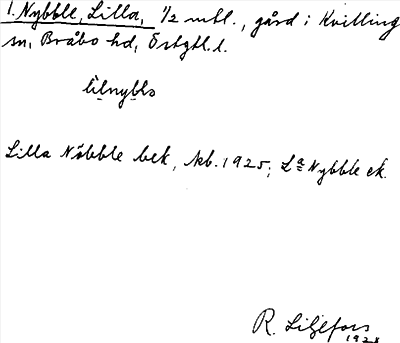 1. Nybble, Lilla, 1/2 mtl., gård i Kvilling
sn, Bråbo hd, Östgtl. l.
lilnybls
Lilla Nöbble bek, kb. 1925; La Nybble ek.
R. Liljefors